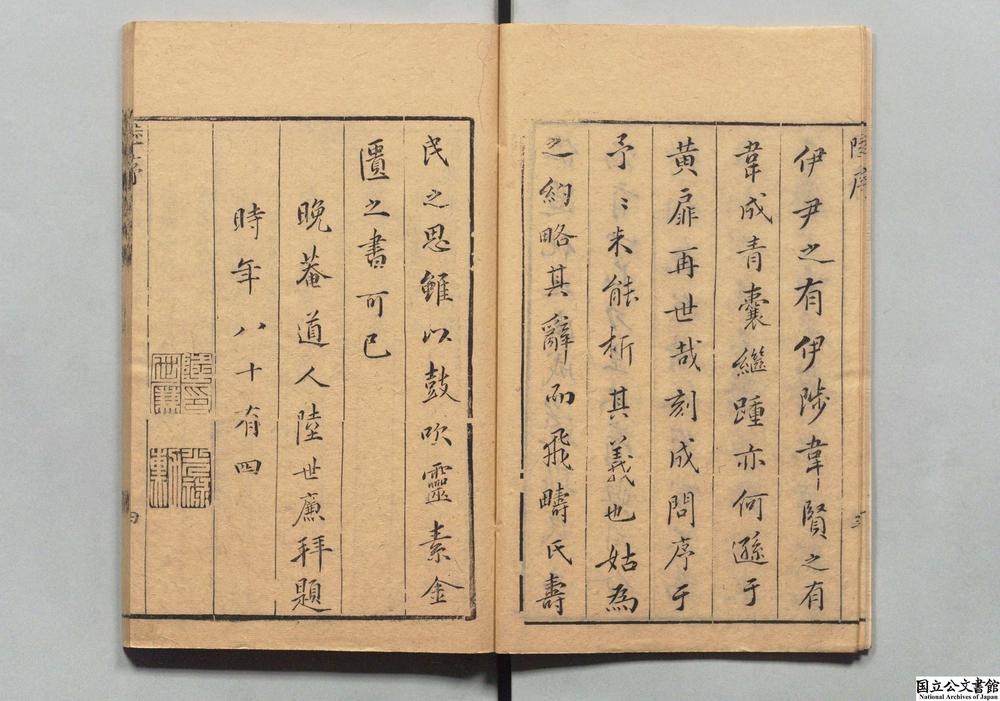 陸序
伊尹之有伊陟韋賢之有
韋成青囊繼踵亦何遜于
黃扉再世哉刻成問序于
予〻未能析其義也姑為
之約略其辭而飛疇氏壽
三
民之思雖以鼓吹靈素金
匱之書可已
晚菴道人陸世廉拜題
時年八十有四
陸序
四
国立公文書館
National Archives of Japan